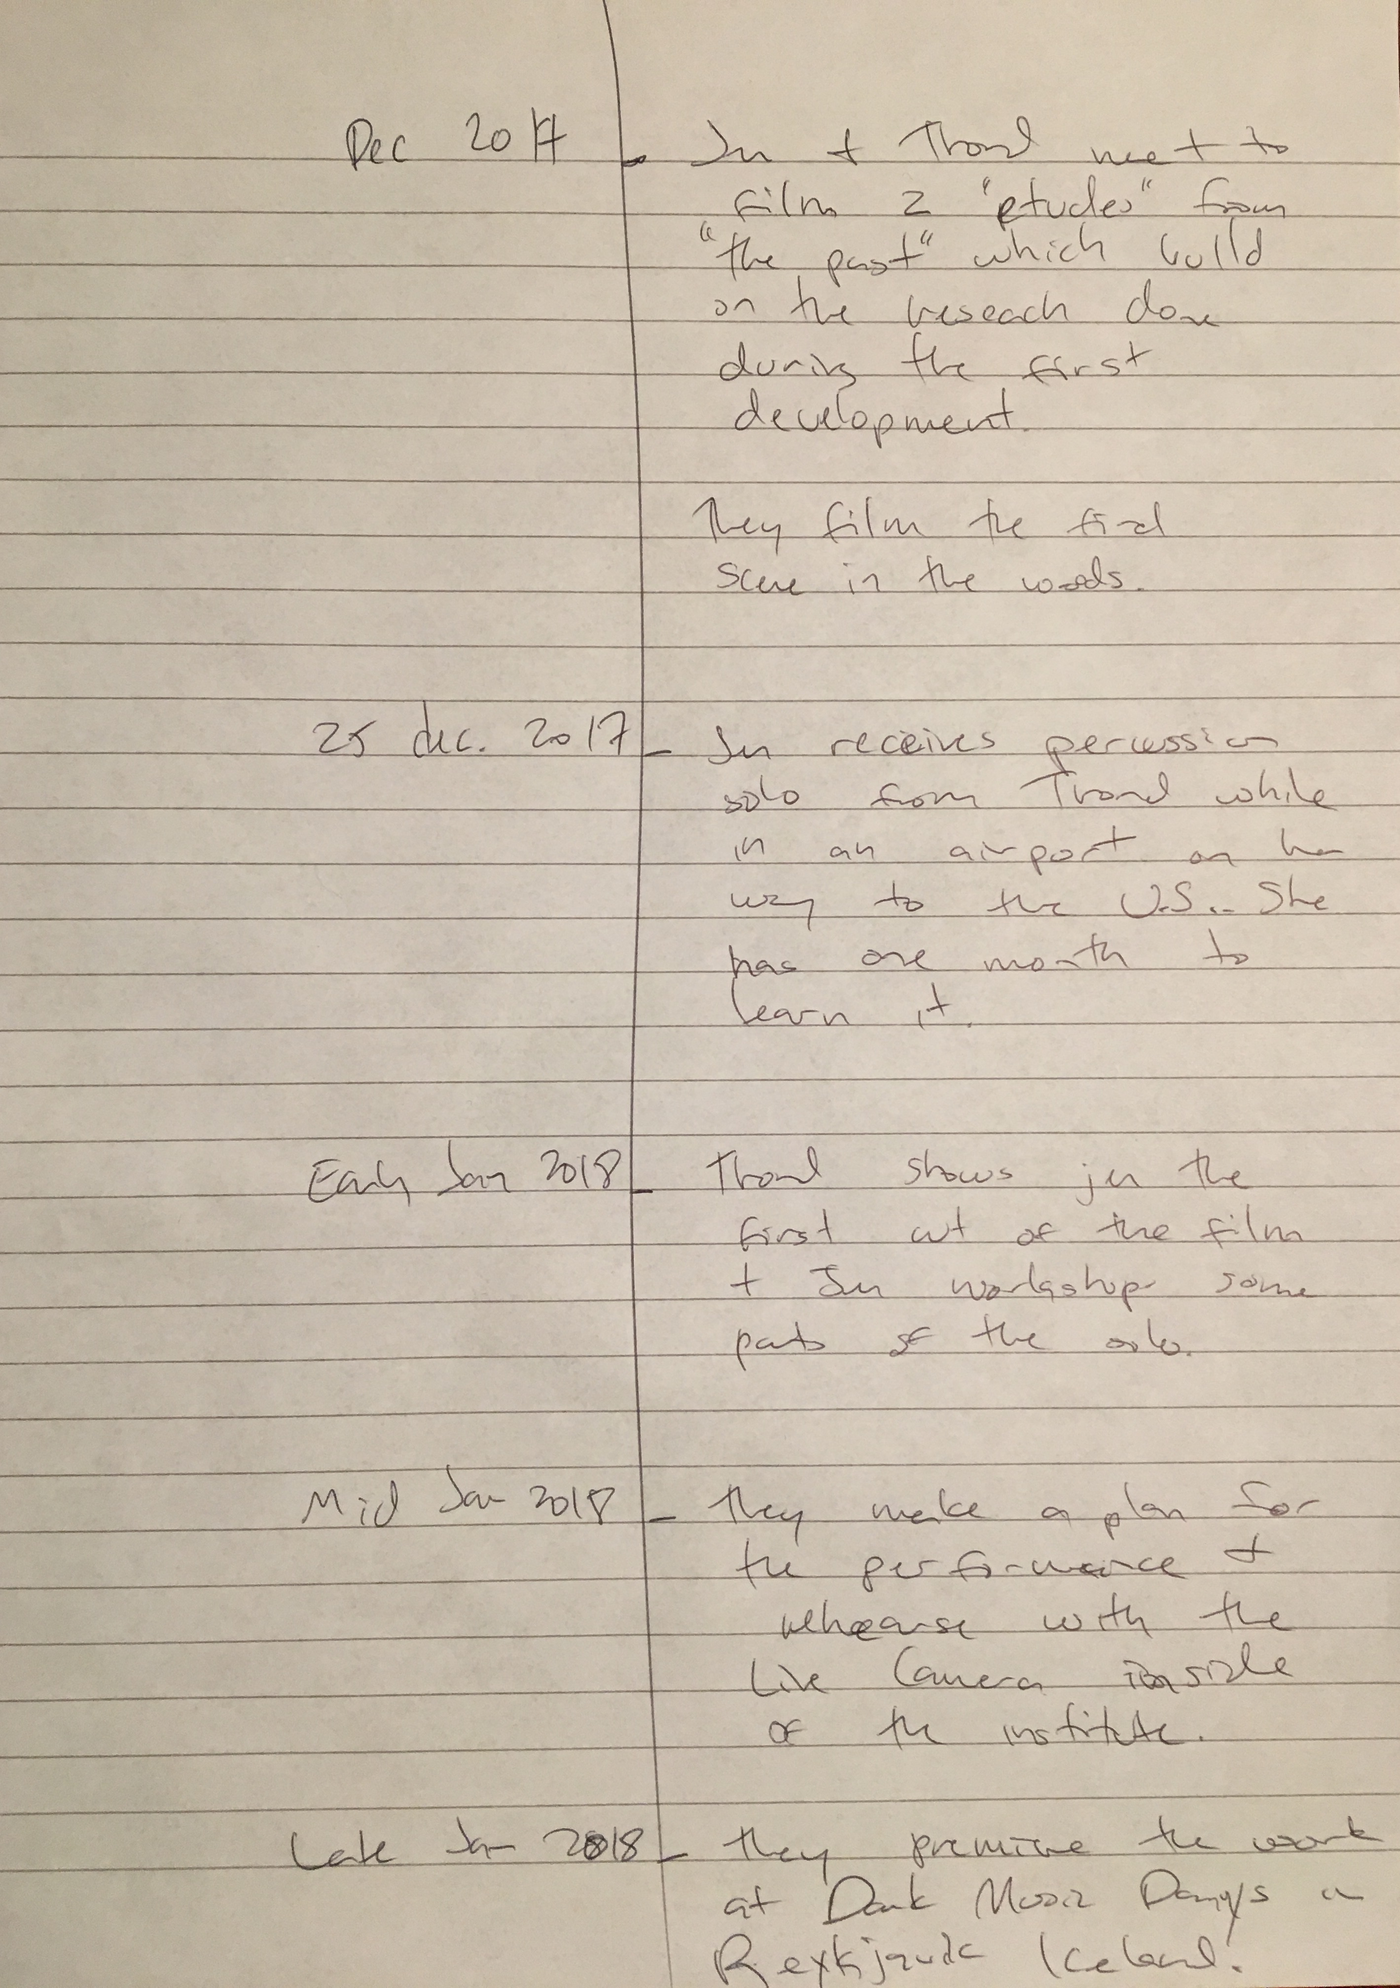 Dec 2017 - Jen + Trond meet to
film 2 "etudes" from
"the past" which build
on the reseach done
during the first
development.
They film the final
scene in the woods.
25 dec. 2017 - Jen receives percussion
solo from Trond while
in an airport on her
way to the U.S.. She
has one month to
learn it.
Early Jan 2018 - Trond shows jen the
first cut of the film
+ Jen workshop some
parts of the solo.
Mid Jan 2018 - they make a plan for
the performance +
rehearse with the
Live Camera inside
of the institute.
Late Jan 2018 - they premiere the work
at Dark Music Days in
Reykjavik Iceland!